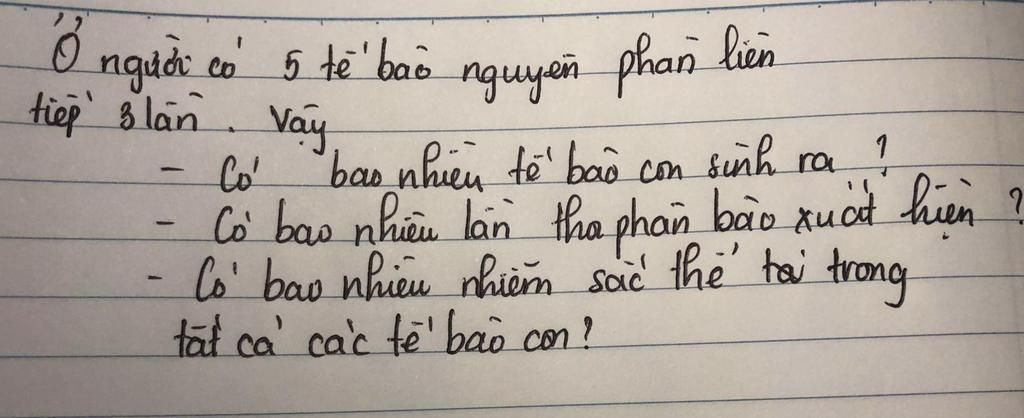 Ở người có 5 tế bào nguyên phân liên
tiếp 3 lần. Vậy
- Có bao nhiêu tế bào con sinh ra ?
- Có bao nhiêu lần thoi phân bào xuất hiện ?
- Có bao nhiêu nhiễm sắc thể tại trong
tất cả các tế bào con ?